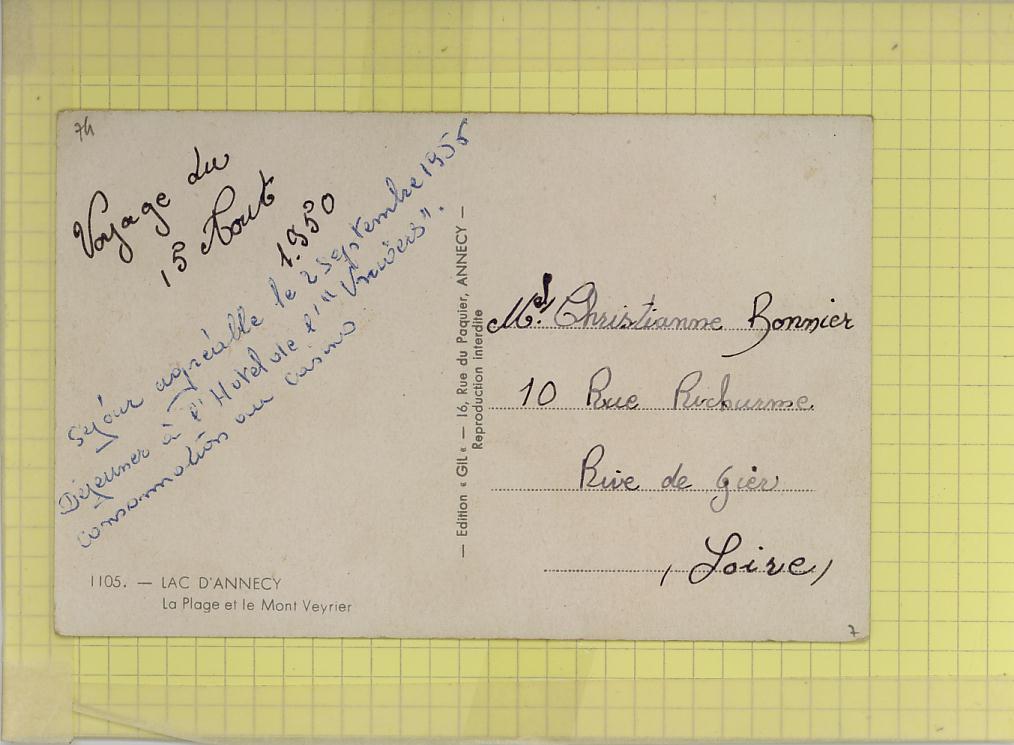 7h
Voyage du
15 Aout
1.950
Séjour agréable le 2 Septembre 1958
Déjeuner à l'Hotel de l'"Univers".
consommation au casino
1105. — LAC D'ANNECY
La Plage et le Mont Veyrier
— Edition « GIL » — 16, Rue du Paquier, ANNECY —
Reproduction interdite
Mel Christianne Bonnier
10 Rue Richarme
Rive de Gier
(Loire)
7